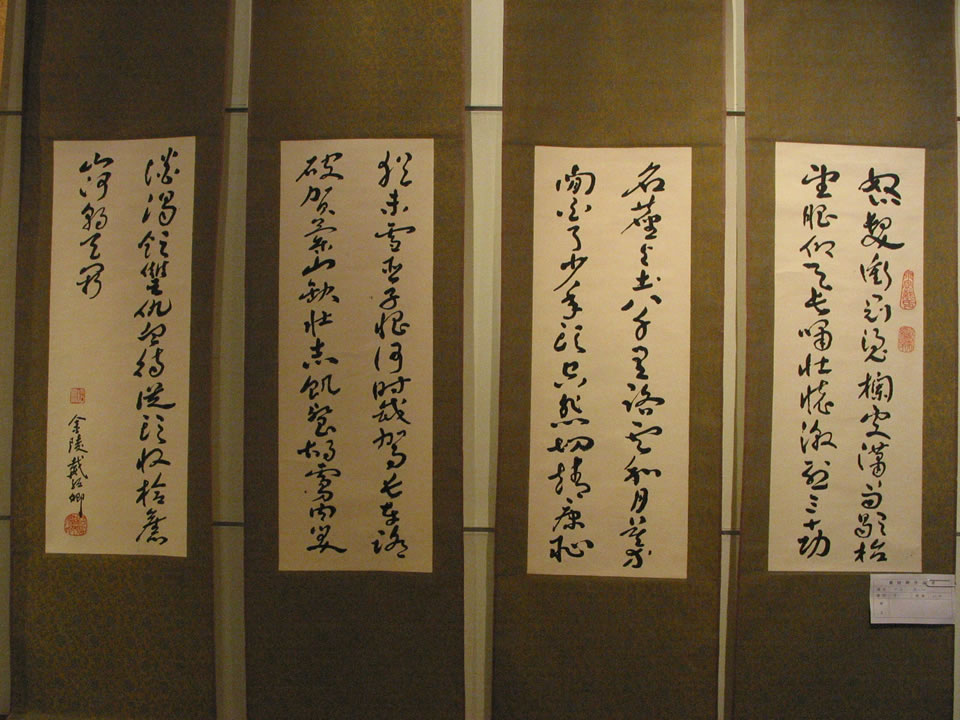 怒髮衝冠憑欄處瀟雨歇抬
望眼仰天長嘯壯懷激烈三十功
名塵與土八千里路雲和月莫
閒白了少年頭空悲切靖康恥
猶未雪臣子恨何时滅駕長車踏
破賀蘭山缺壯志飢餐胡虜肉笑
談渴飲讎仇血待從頭收拾舊
山河朝天闕
金陵戴卿